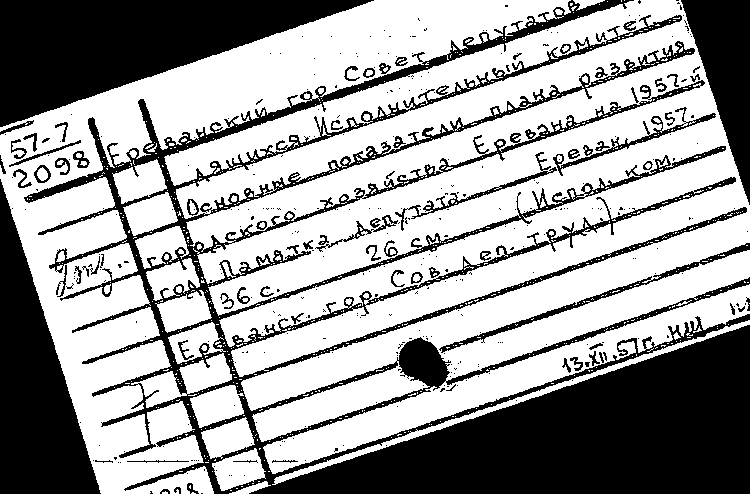 57-7
2098
Ереванский гор. Совет депутатов
дящихся. Исполнительный комитет.
Основные показатели плана развития
городского хозяйства Еревана на 1957-й
год. Памятка депутата. Ереван, 1957.
36 с. 26 см. (Испол. ком.
Ереванск. гор. Сов. деп. труд.).
2экз.
13.XII.57г.